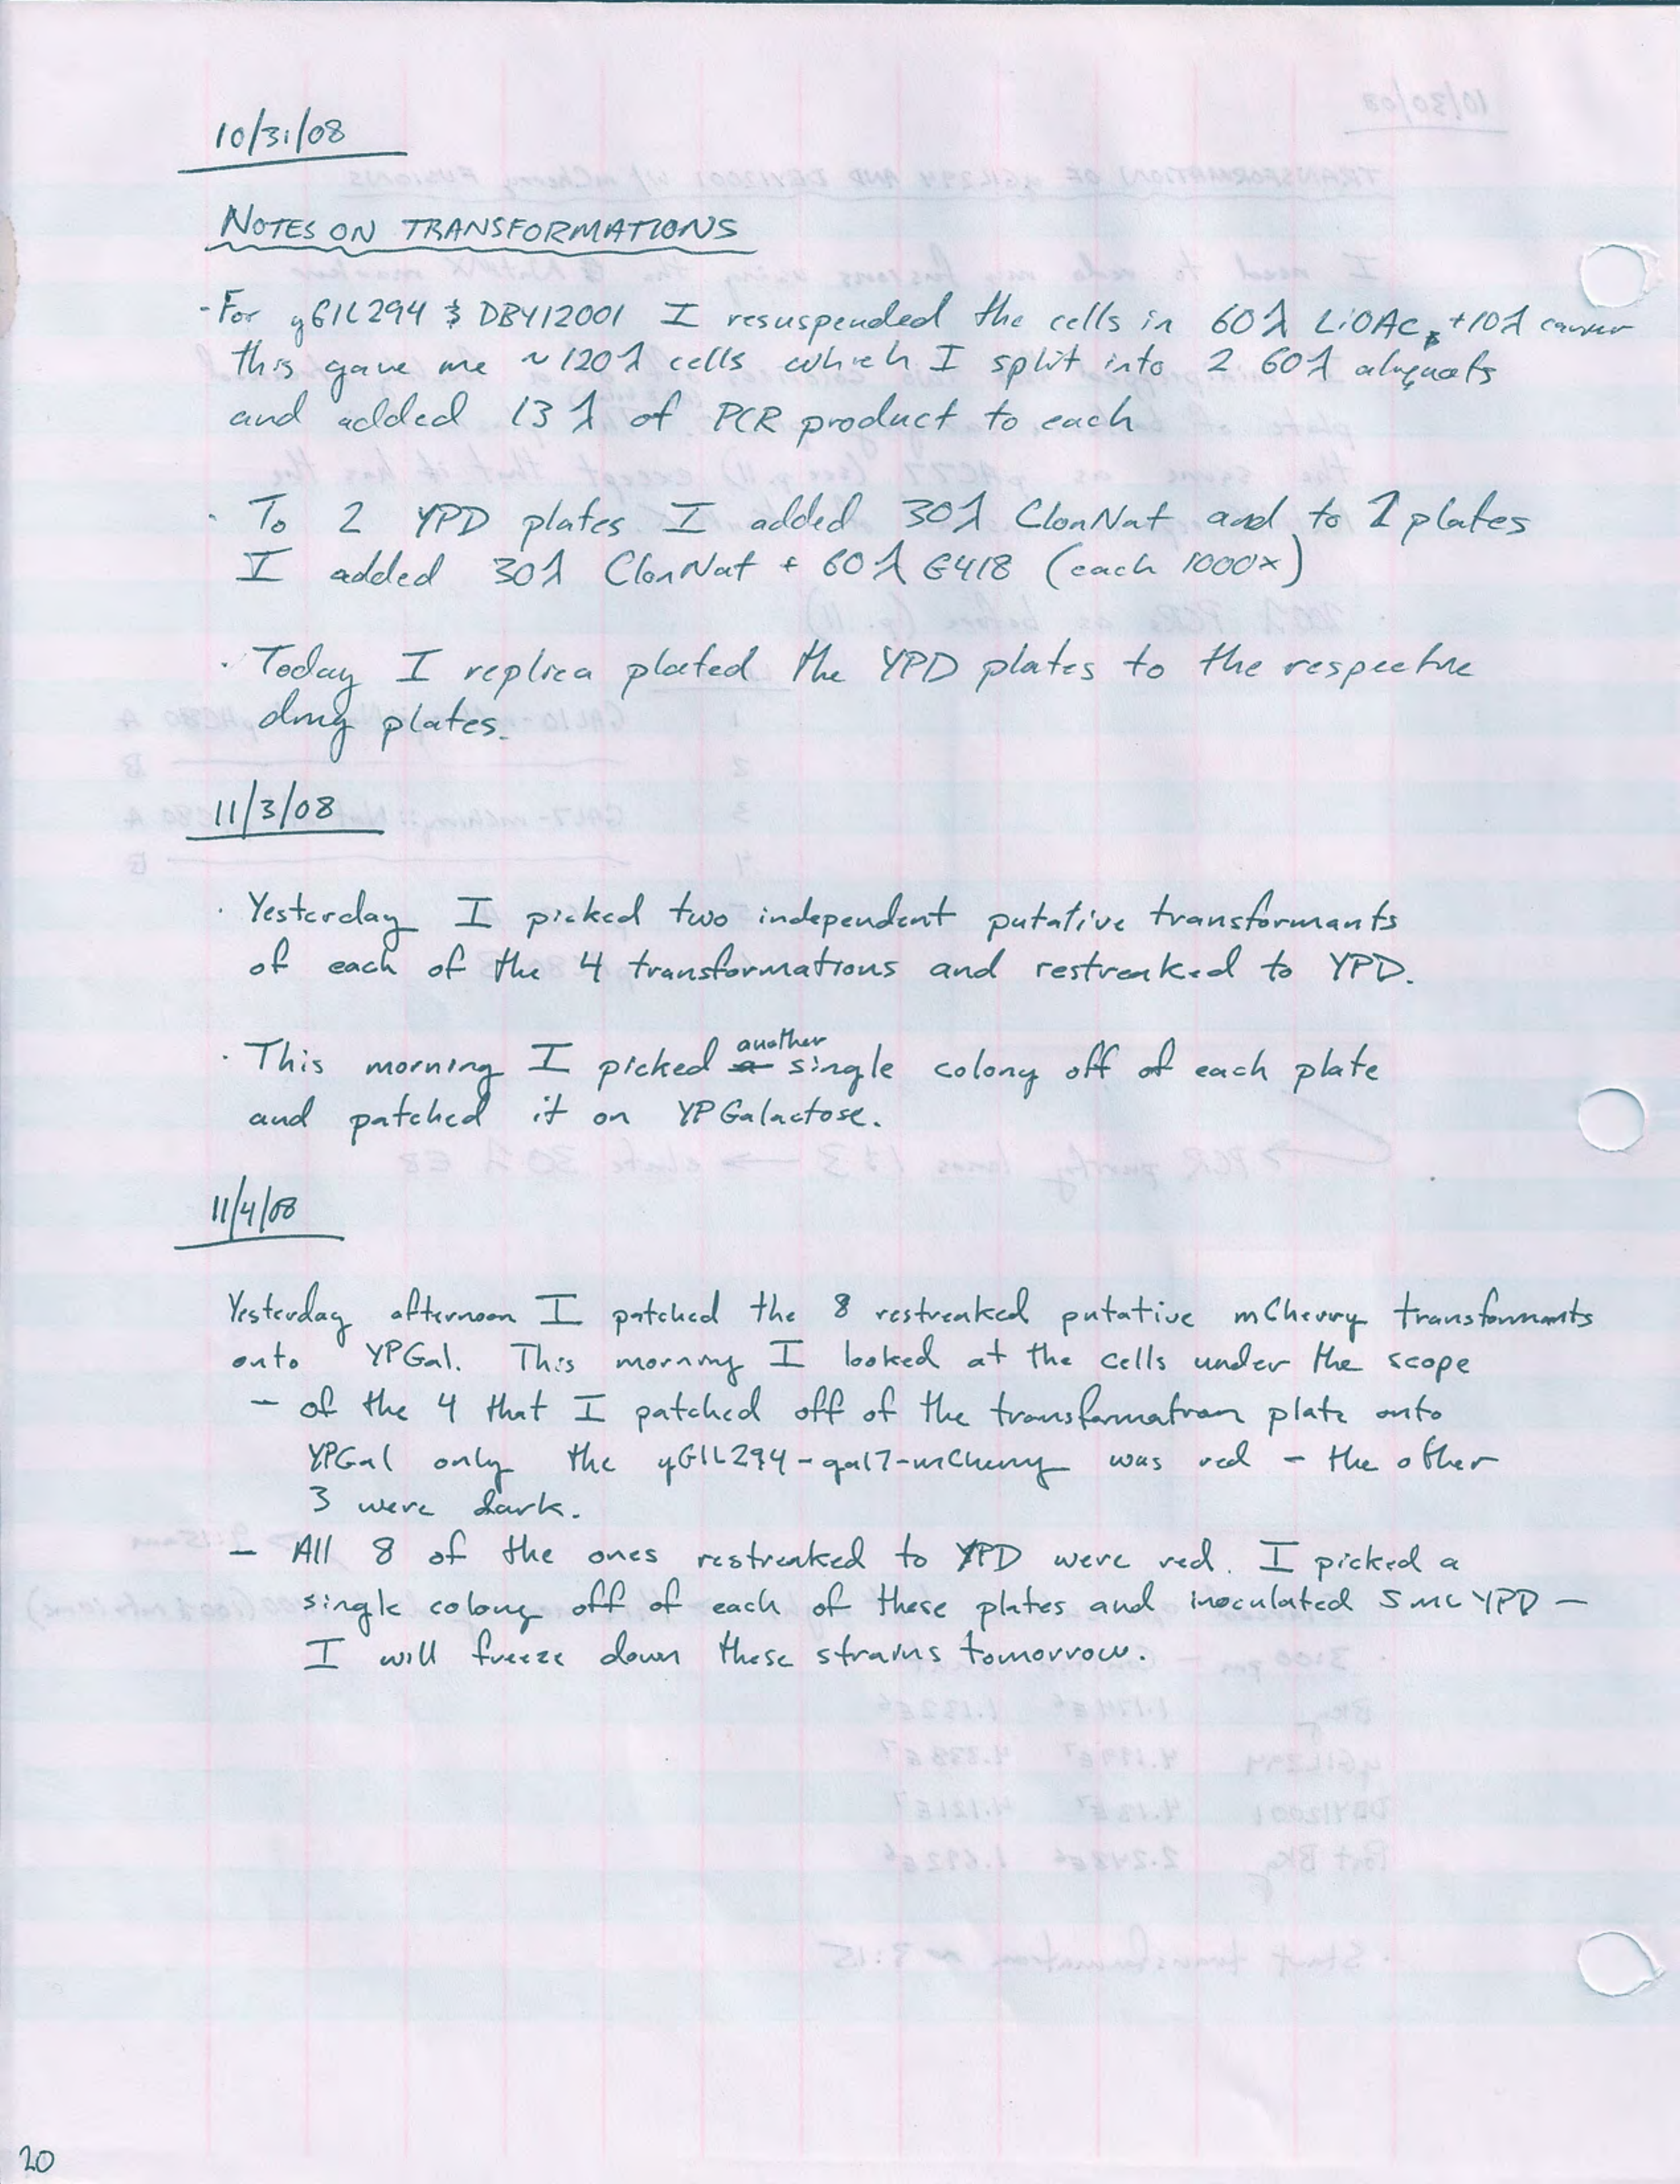 10/31/08
NOTES ON TRANSFORMATIONS
- For yGIL294 & DBY12001 I resuspended the cells in 60λ LiOAc +10λ carrier
this gave me ~120λ cells which I split into 2 60λ aliquots
and added 13λ of PCR product to each
· To 2 YPD plates I added 30λ ClonNat and to 2 plates
I added 30λ ClonNat + 60λ G418 (each 1000x)
· Today I replica plated the YPD plates to the respective
drug plates.
11/3/08
· Yesterday I picked two independent putative transformants
of each of the 4 transformations and restreaked to YPD.
· This morning I picked another single colony off of each plate
and patched it on YPGalactose.
11/4/08
Yesterday afternoon I patched the 8 restreaked putative mCherry transformants
onto YPGal. This morning I looked at the cells under the scope
- of the 4 that I patched off of the transformation plate onto
YPGal only the yGIL294-gal7-mCherry was red - the other
3 were dark.
- All 8 of the ones restreaked to YPD were red. I picked a
single colony off of each of these plates and inoculated 5 mL YPD -
I will freeze down these strains tomorrow.
20